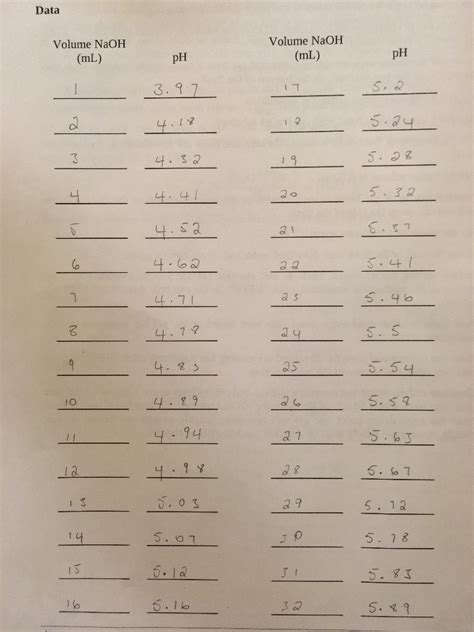 Data
Volume NaOH (mL) pH Volume NaOH (mL) pH
1 3.97 17 5.2
2 4.18 18 5.24
3 4.32 19 5.28
4 4.41 20 5.32
5 4.52 21 5.37
6 4.62 22 5.41
7 4.71 23 5.46
8 4.78 24 5.5
9 4.83 25 5.54
10 4.89 26 5.58
11 4.94 27 5.63
12 4.98 28 5.67
13 5.03 29 5.72
14 5.07 30 5.78
15 5.12 31 5.83
16 5.16 32 5.89